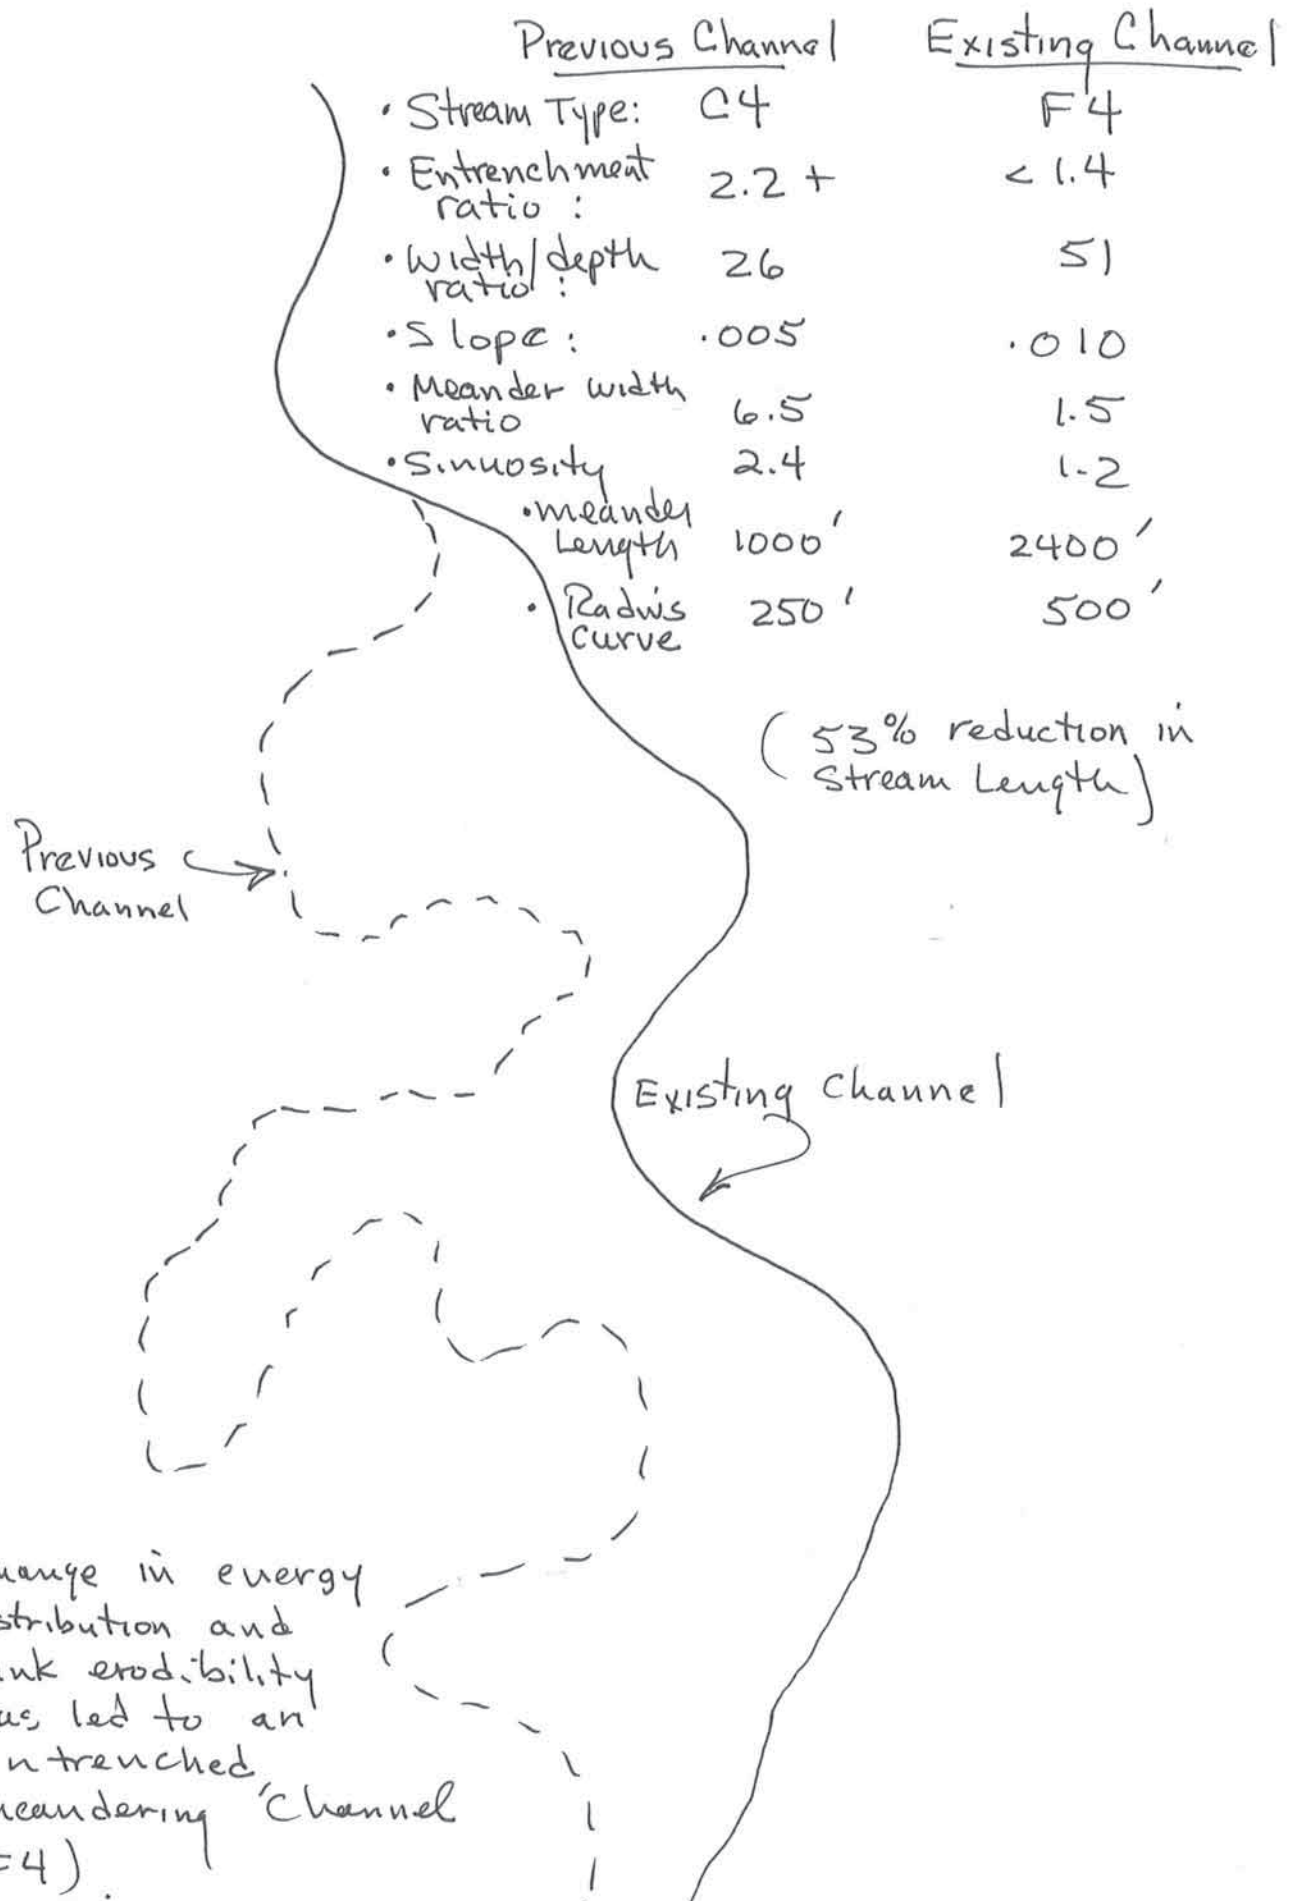 Previous Channel Existing Channel
• Stream Type: C4 F4
• Entrenchment ratio : 2.2 + < 1.4
• Width/depth ratio : 26 51
• Slope : .005 .010
• Meander width ratio 6.5 1.5
• Sinuosity 2.4 1.2
• meander Length 1000' 2400'
• Radius curve 250' 500'
( 53% reduction in
Stream Length )
Previous
Channel
Existing Channel
hange in energy
stribution and
nk erodibility
as led to an
ntrenched
eandering Channel
F4).